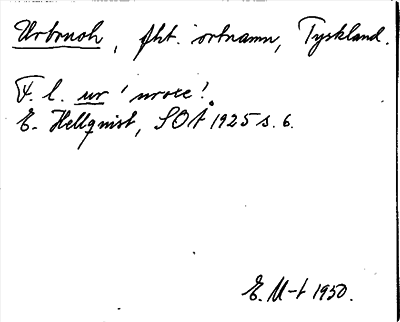 Urbruch, fht. ortnamn, Tyskland.
F. l. ur 'uroxe'.
E. Hellquist, SOÅ 1925 s. 6.
E. M-t 1950.